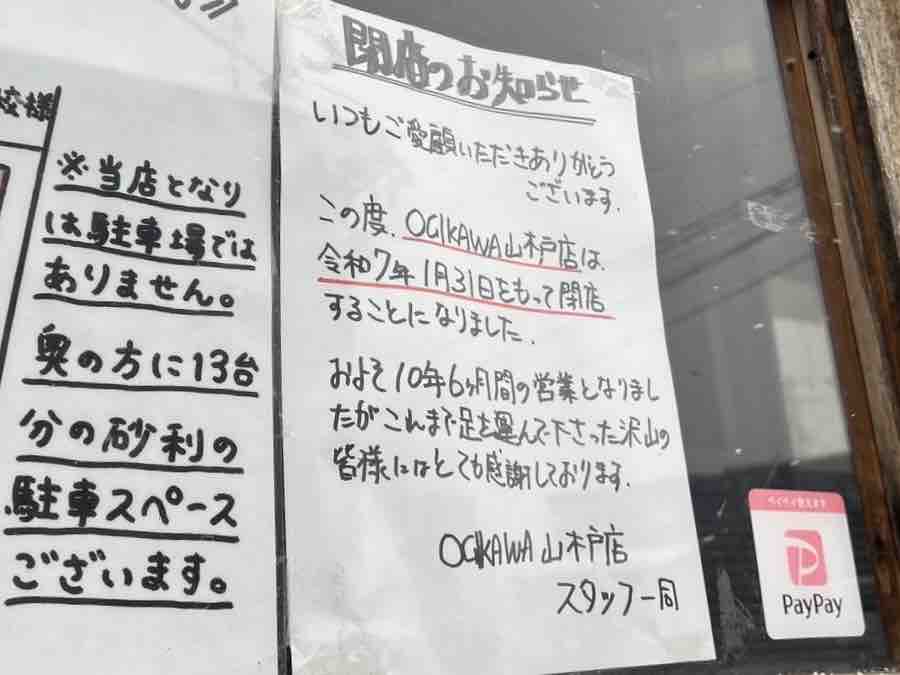 様
※当店となり
は駐車場では
ありません。
奥の方に13台
分の砂利の
駐車スペース
ございます。
閉店のお知らせ
いつもご愛顧いただきありがとう
ございます.
この度、OGIKAWA山木戸店は、
令和7年1月31日をもって閉店
することになりました.
およそ10年6ヶ月間の営業となりまし
たがこれまで足を運んで下さった沢山の
皆様にはとても感謝しております.
OGIKAWA 山木戸店
スタッフ一同
ペイペイ使えます
PayPay